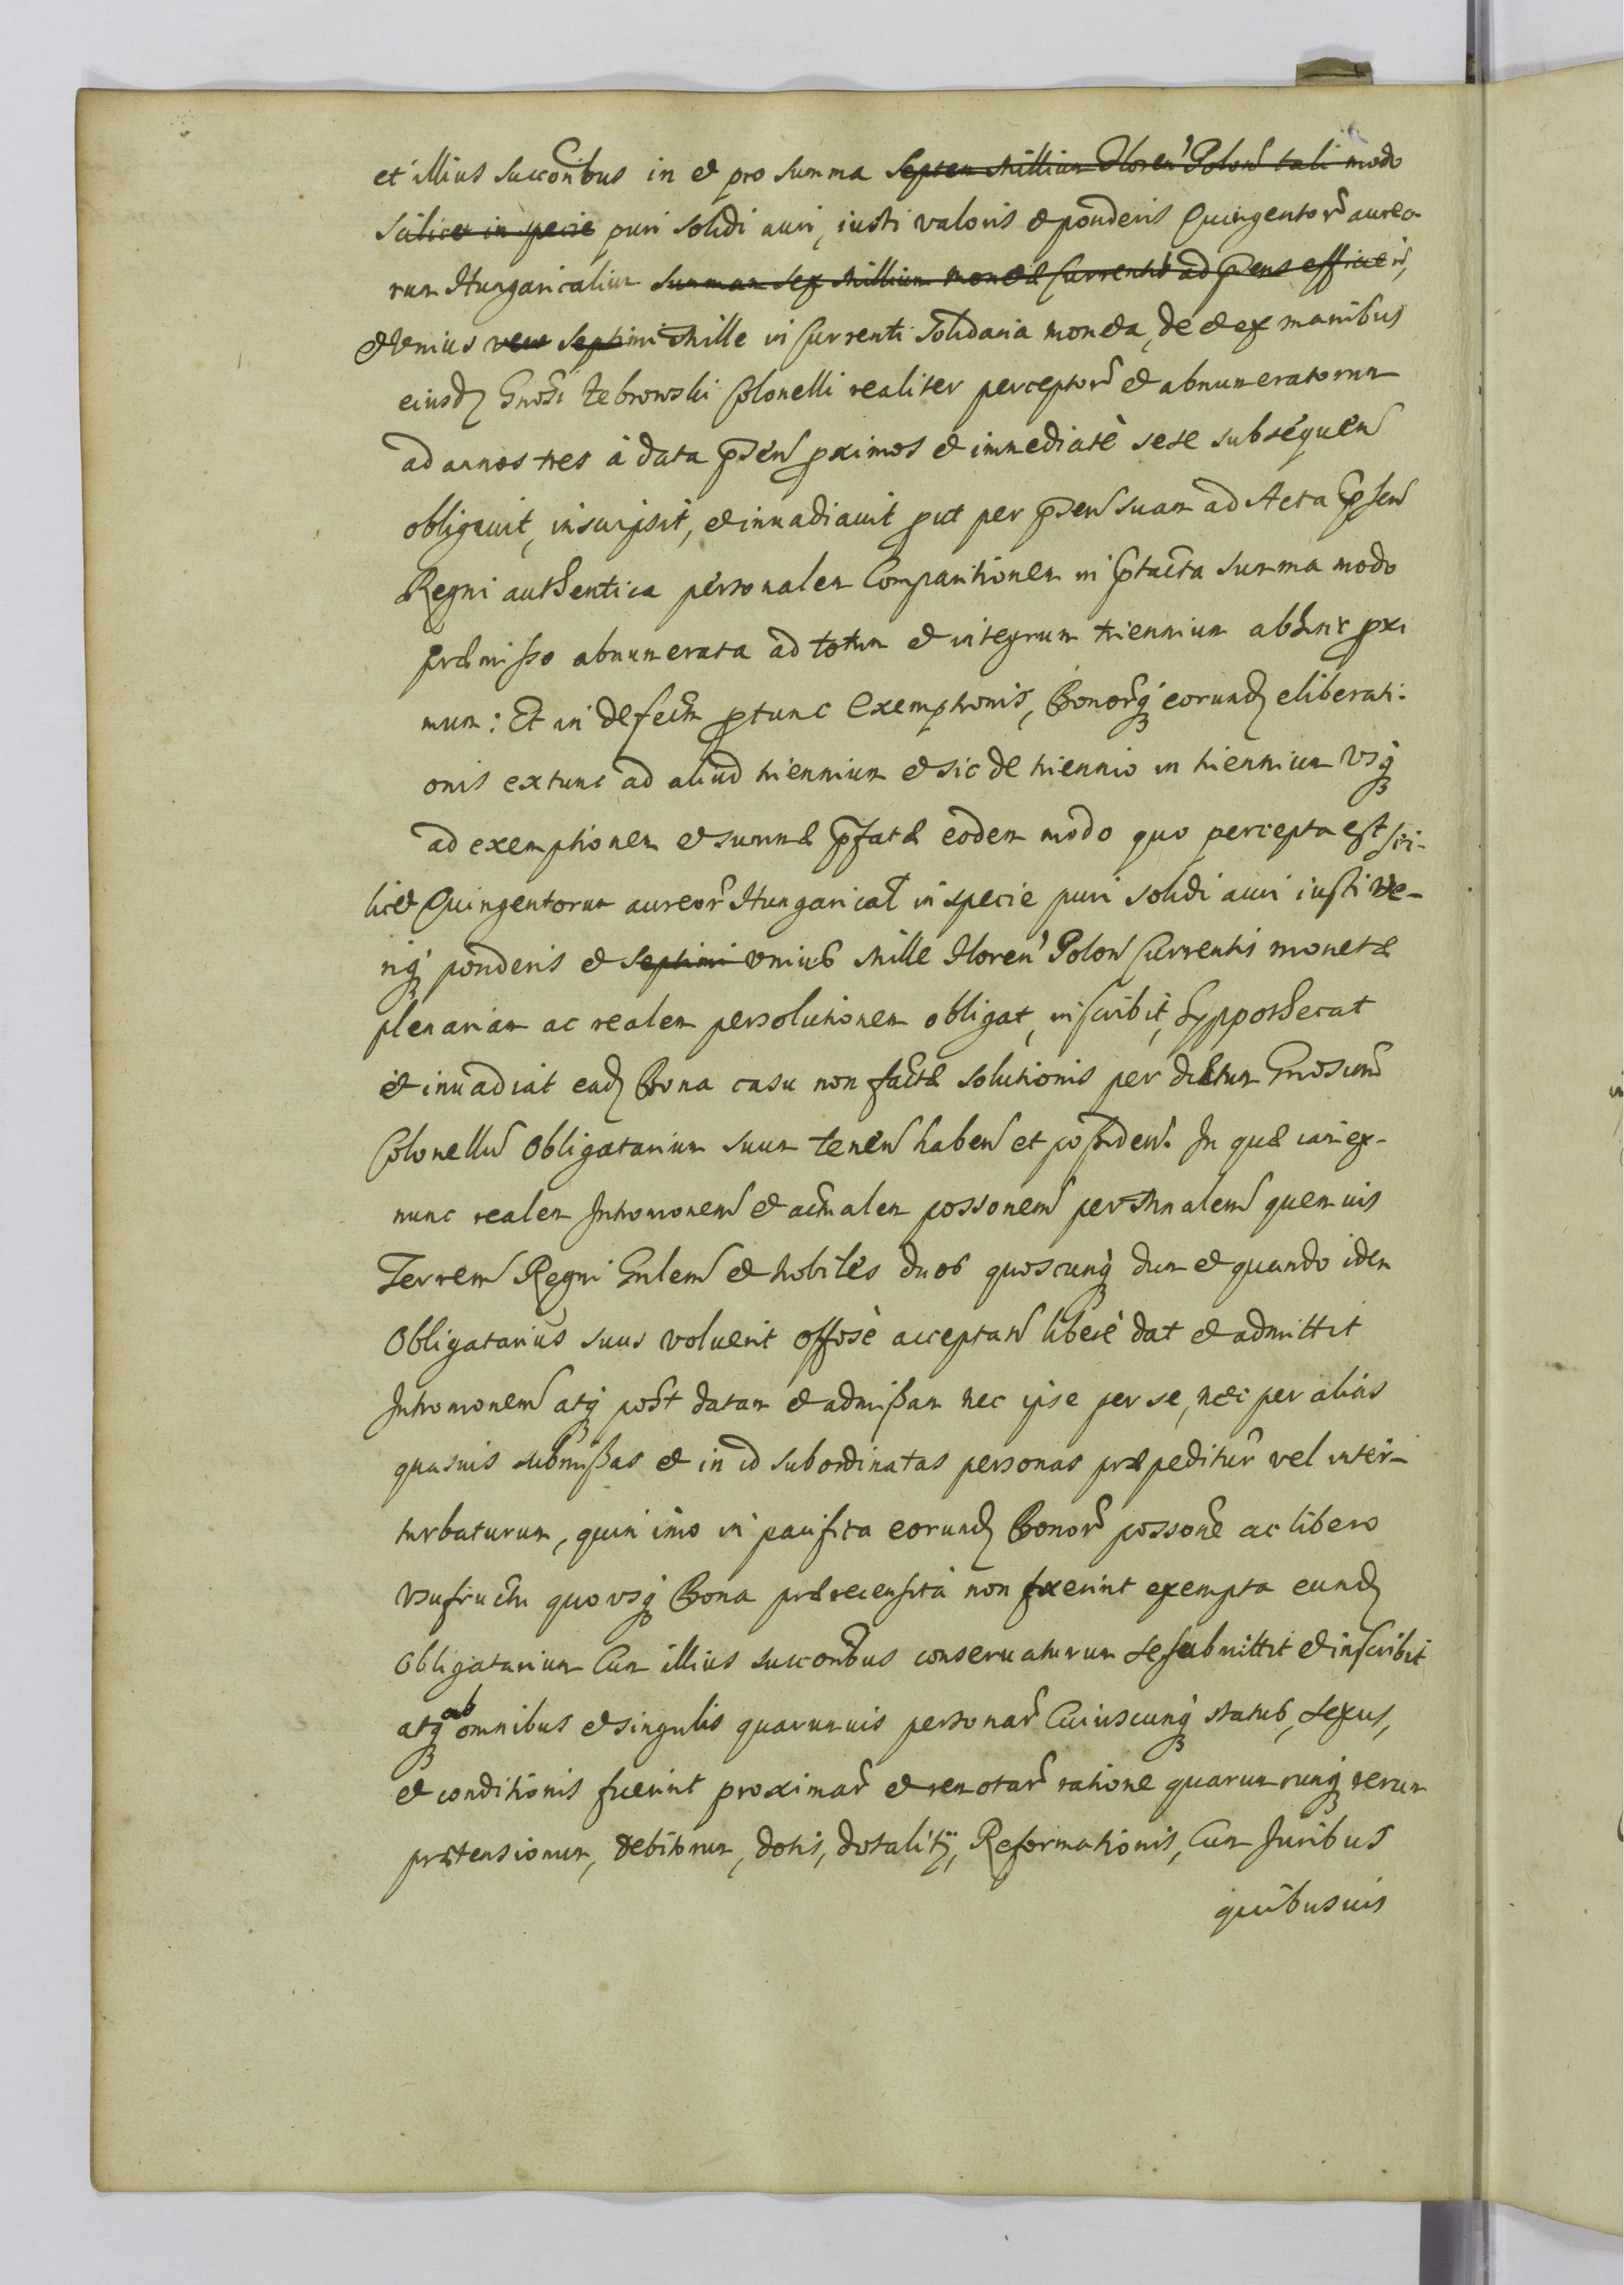 et illius succoribus in et pro summa septem millium Floren Polon tali modo
scilicet in specie puri solidi auri, iusti valoris et ponderis Quingentor aureo
rum Hungaricalium summam sex millium monetæ currentis ad præns efficien,
et unius vero septimi mille in currenti solidaria moneta, de et ex manibus
eiusd Gnosi Zebrowski Colonelli realiter perceptor et abnumeratorum
ad annos tres à data præsen pximos et immediatè sese subsequen
obligavit, inscripsit, et invadiavit put per præsen suam ad Acta præsen
Regni authentica personalem Comparitionem in prætacta summa modo
præmisso abnumerata ad totum et integrum triennium abhinc pxi
mum: Et in defectu ptunc Exemptionis, Bonorq eorund eliberati-
onis extunc ad aliud triennium et sic de triennio in triennium usq
ad exemptionem et summæ præfatæ eodem modo quo percepta est sci-
licet Quingentorum aureor Hungarical in specie puri solidi auri iusti ve-
riq ponderis et septimi unius mille Floren Polon Currentis monetæ
plenariam ac realem persolutionem obligat, inscribit, hyppothecat
et invadiat ead Bona casu non factæ solutionis per dictum Gnosum
Colonellu Obligatarium suum tenen haben et possiden. In quæ iam ex-
nunc realem Intromonem et actualem possonem per Mnalem quemvis
Terrem Regni Gnlem et Nobiles duos quoscunq dum et quando idem
Obligatarius suus voluerit offosè acceptan liberè dat et admittit
Intromonem atq post datam et admissam nec ipse per se, nec per alias
quasvis submissas et in id subordinatas personas præpeditur vel inter-
turbaturum, quin imo in pacifica eorund Bonor possone ac libero
usufructu quousq Bona prærecensita non fuerint exempta eund
Obligatarium Cum illius succoribus conservaturum se submittit et inscribit
atq ab omnibus et singulis quarumvis personar Cuiuscunq status, sexus,
et conditionis fuerint proximar et remotar ratione quarumcunq rerum
prætensionum, debitorum, dotis, dotalitÿ, Reformationis, Cum Juribus
quibusvis